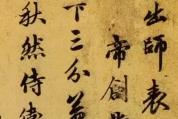 出師表
帝創業
下三分益
秋然侍衛